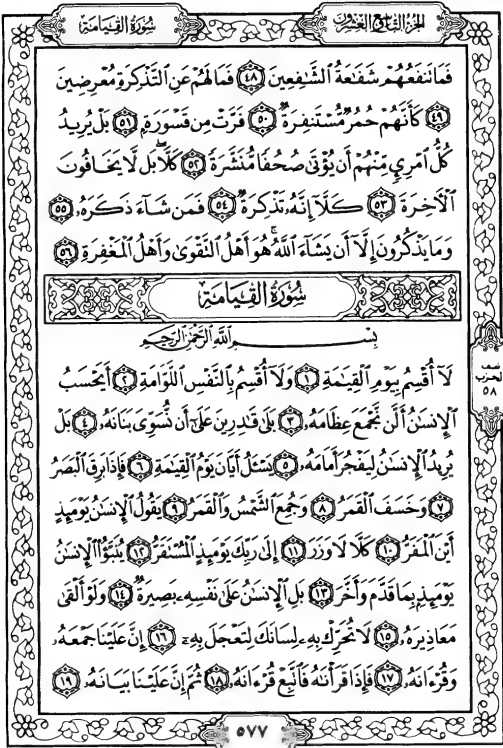 الجزء التاسع والعشرون
سُورَةُ القِيَامَةِ
فَمَا تَنفَعُهُمْ شَفَاعَةُ ٱلشَّافِعِينَ ٤٨ فَمَا لَهُمْ عَنِ ٱلتَّذْكِرَةِ مُعْرِضِينَ
٤٩ كَأَنَّهُمْ حُمُرٌ مُّسْتَنفِرَةٌ ٥٠ فَرَّتْ مِن قَسْوَرَةٍ ٥١ بَلْ يُرِيدُ
كُلُّ ٱمْرِئٍ مِّنْهُمْ أَن يُؤْتَىٰ صُحُفًا مُّنَشَّرَةً ٥٢ كَلَّا بَل لَّا يَخَافُونَ
ٱلْآخِرَةَ ٥٣ كَلَّا إِنَّهُۥ تَذْكِرَةٌ ٥٤ فَمَن شَآءَ ذَكَرَهُۥ ٥٥
وَمَا يَذْكُرُونَ إِلَّآ أَن يَشَآءَ ٱللَّهُ هُوَ أَهْلُ ٱلتَّقْوَىٰ وَأَهْلُ ٱلْمَغْفِرَةِ ٥٦
سُورَةُ القِيَامَةِ
بِسْمِ ٱللَّهِ ٱلرَّحْمَٰنِ ٱلرَّحِيمِ
لَآ أُقْسِمُ بِيَوْمِ ٱلْقِيَٰمَةِ ١ وَلَآ أُقْسِمُ بِٱلنَّفْسِ ٱللَّوَّامَةِ ٢ أَيَحْسَبُ
ٱلْإِنسَٰنُ أَلَّن نَّجْمَعَ عِظَامَهُۥ ٣ بَلَىٰ قَٰدِرِينَ عَلَىٰٓ أَن نُّسَوِّىَ بَنَانَهُۥ ٤ بَلْ
يُرِيدُ ٱلْإِنسَٰنُ لِيَفْجُرَ أَمَامَهُۥ ٥ يَسْـَٔلُ أَيَّانَ يَوْمُ ٱلْقِيَٰمَةِ ٦ فَإِذَا بَرِقَ ٱلْبَصَرُ
٧ وَخَسَفَ ٱلْقَمَرُ ٨ وَجُمِعَ ٱلشَّمْسُ وَٱلْقَمَرُ ٩ يَقُولُ ٱلْإِنسَٰنُ يَوْمَئِذٍ
أَيْنَ ٱلْمَفَرُّ ١٠ كَلَّا لَا وَزَرَ ١١ إِلَىٰ رَبِّكَ يَوْمَئِذٍ ٱلْمُسْتَقَرُّ ١٢ يُنَبَّؤُا۟ ٱلْإِنسَٰنُ
يَوْمَئِذٍۭ بِمَا قَدَّمَ وَأَخَّرَ ١٣ بَلِ ٱلْإِنسَٰنُ عَلَىٰ نَفْسِهِۦ بَصِيرَةٌ ١٤ وَلَوْ أَلْقَىٰ
مَعَاذِيرَهُۥ ١٥ لَا تُحَرِّكْ بِهِۦ لِسَانَكَ لِتَعْجَلَ بِهِۦٓ ١٦ إِنَّ عَلَيْنَا جَمْعَهُۥ
وَقُرْءَانَهُۥ ١٧ فَإِذَا قَرَأْنَٰهُ فَٱتَّبِعْ قُرْءَانَهُۥ ١٨ ثُمَّ إِنَّ عَلَيْنَا بَيَانَهُۥ ١٩
نصف
الحزب
٥٨
٥٧٧